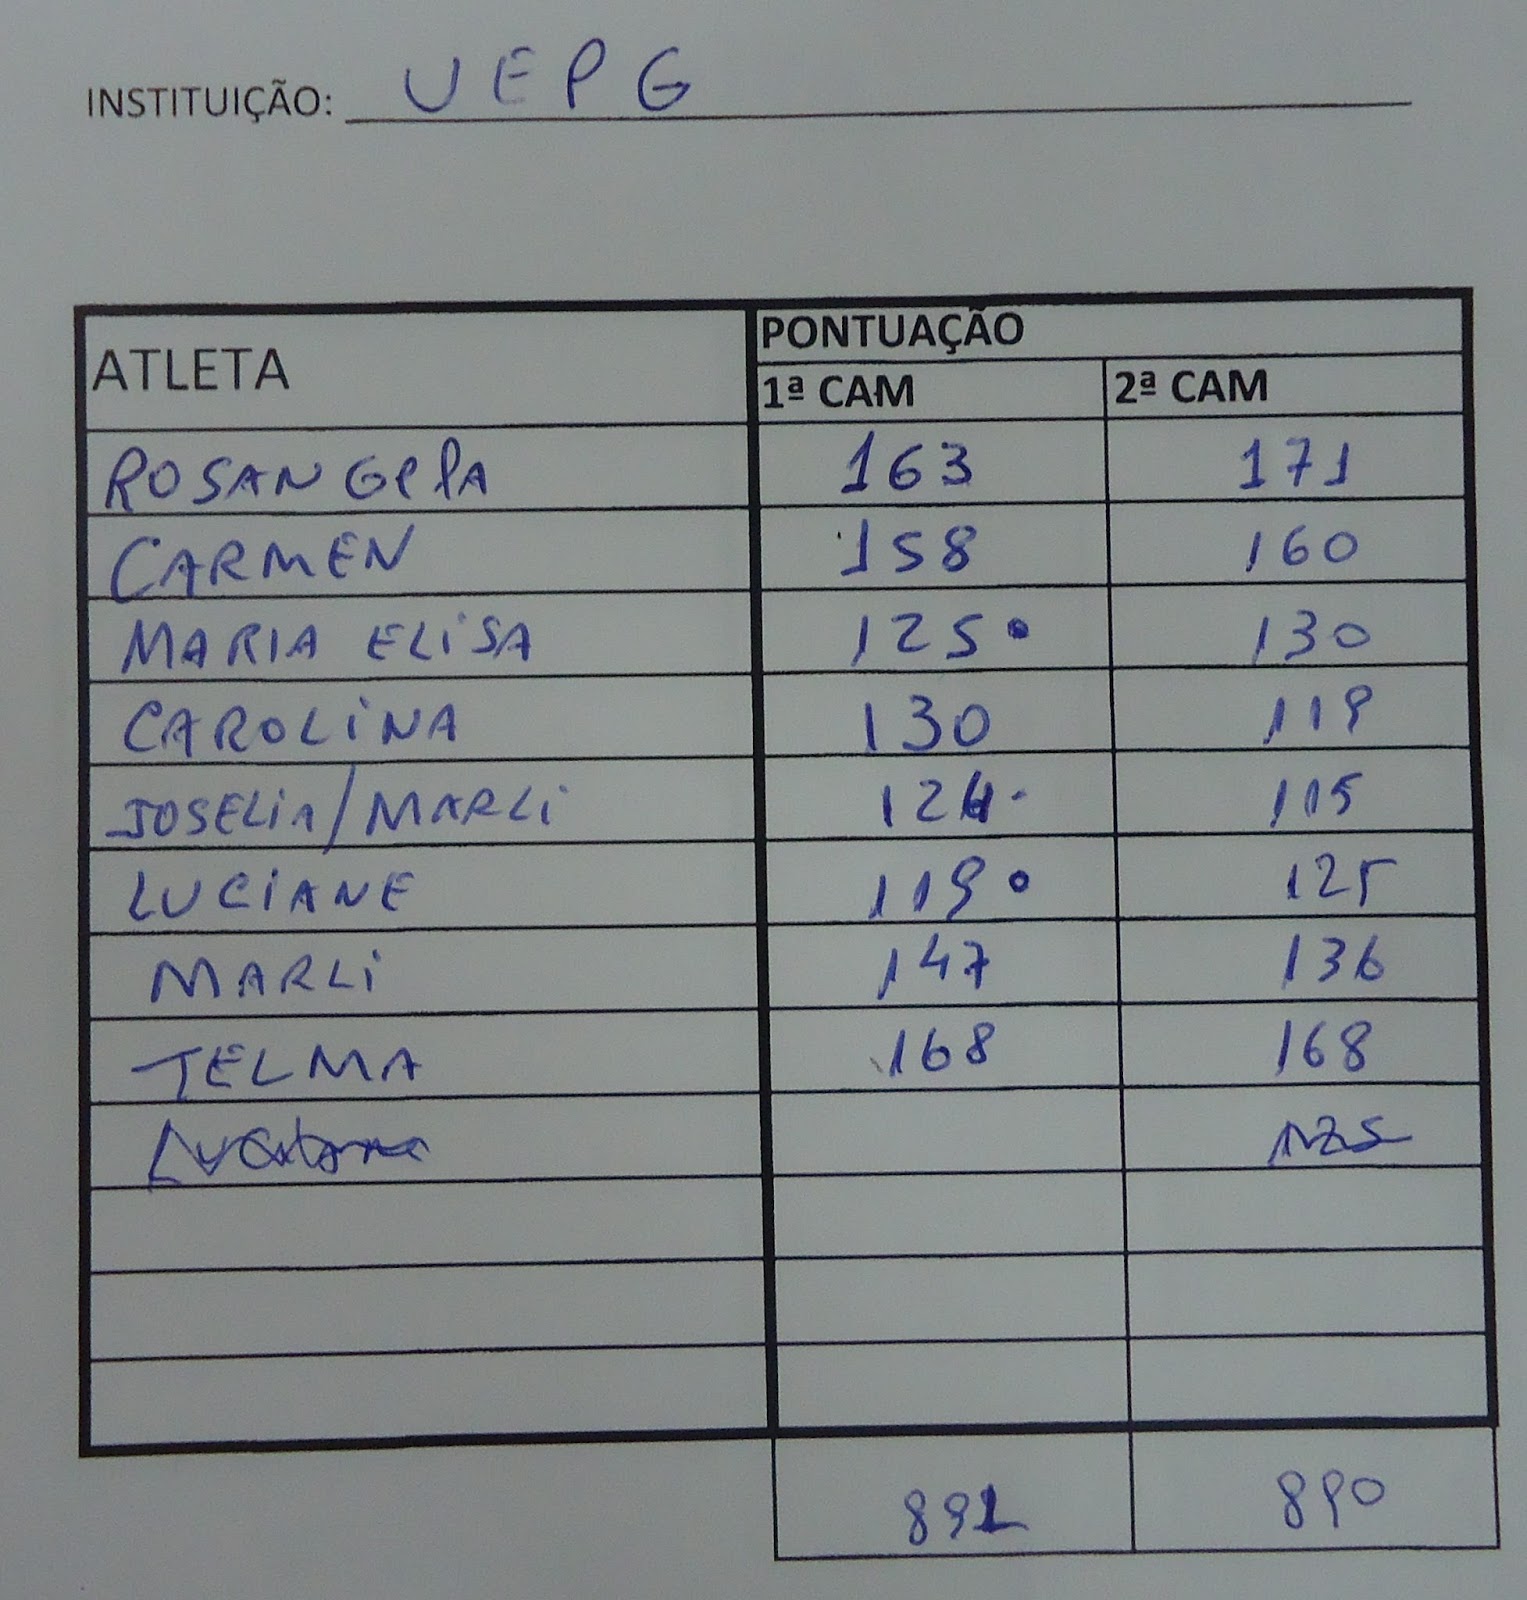 INSTITUIÇÃO: UEPG
ATLETA PONTUAÇÃO
1ª CAM 2ª CAM
ROSANGELA 163 171
CARMEN 158 160
MARIA ELISA 125 130
CAROLINA 130 119
JOSELIA/MARLI 124 115
LUCIANE 119 125
MARLI 147 136
TELMA 168 168
125
891 890